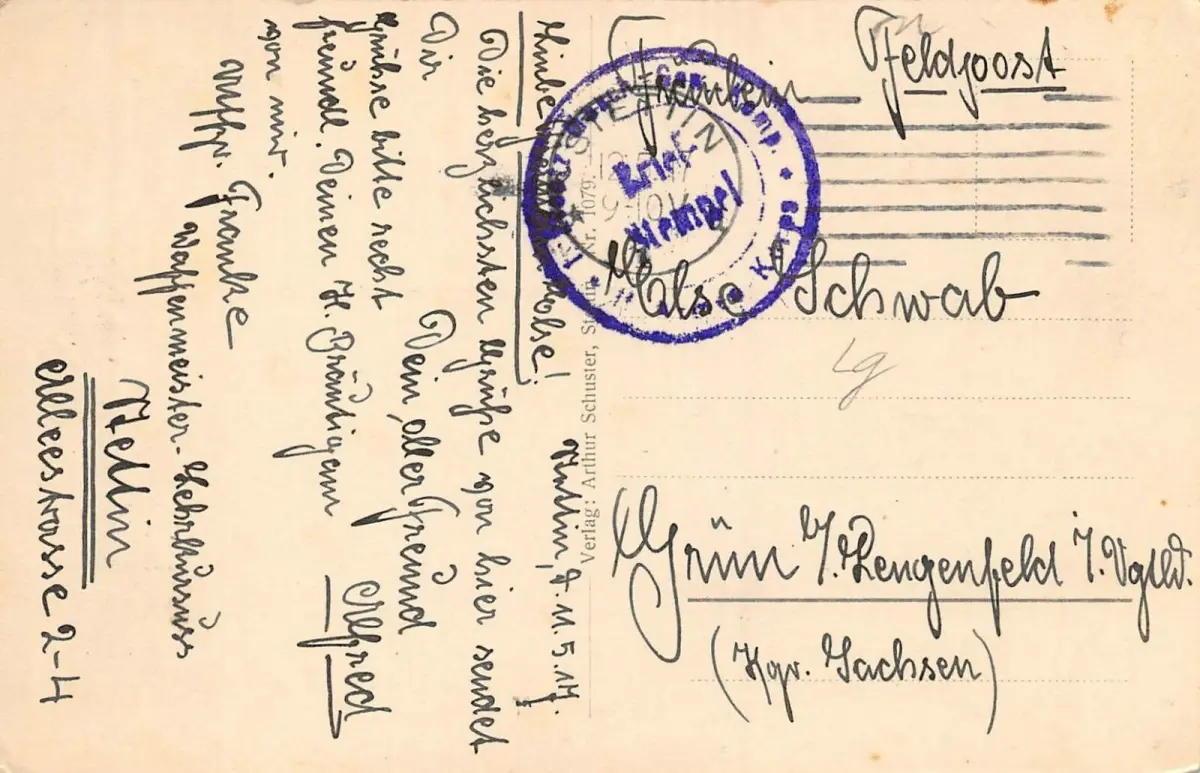 Feldpost
Fräulein
Else Schwab
Grün b/. Lengenfeld i. Vgtld.
(Kgr. Sachsen)
Stettin, d. 11.5.17.
Else!
Die herzlichsten Grüße von hier sendet
Dir
Dein oller Freund
Alfred
Grüße bitte recht
freundl. Deinen H. Bräutigam
von mir.
Franke
Waffenmeister-Lehrkursus
Stettin
Alleestrasse 2-4
Verlag: Arthur Schuster, Nr. 1079.
STETTIN
Brief-
stempel
Komp.
Korps